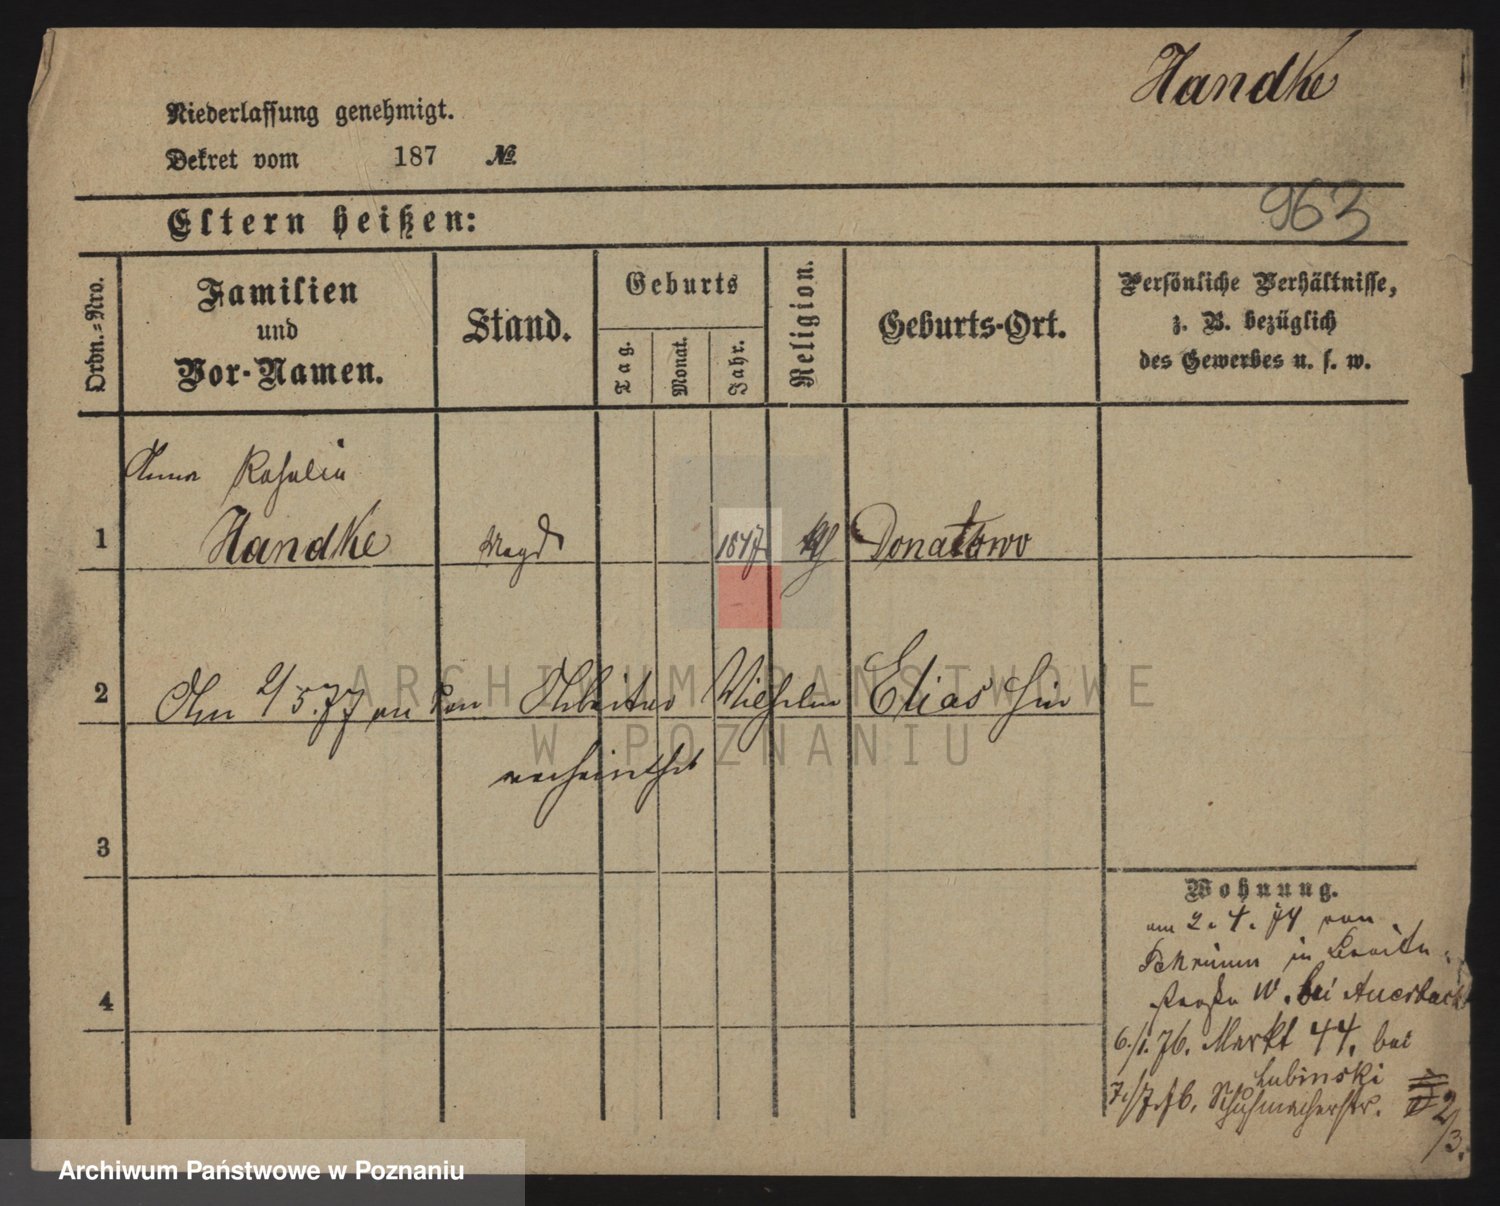 Handke
Niederlassung genehmigt.
Dekret vom 187 №
963
Eltern heißen:
Ordn.=Nro.
Familien
und
Vor-Namen.
Stand.
Geburts
Tag.
Monat.
Jahr.
Religion.
Geburts-Ort.
Persönliche Verhältnisse,
z. B. bezüglich
des Gewerbes u. s. w.
Anna Rosalie
1 Handke Magd 1847 kth Donatowo
2 Am 2/5.77 an den Arbeiter Wilhelm Elias hier
verheirathet
3
4
Wohnung.
am 2. 4. 74 von
in Breite-
straße bei Auerbach
6./1. 76. Markt 44. bei
Lubinski
7./7.76. Schuhmacherstr.
2/3.
ARCHIWUM PAŃSTWOWE
W POZNANIU
Archiwum Państwowe w Poznaniu